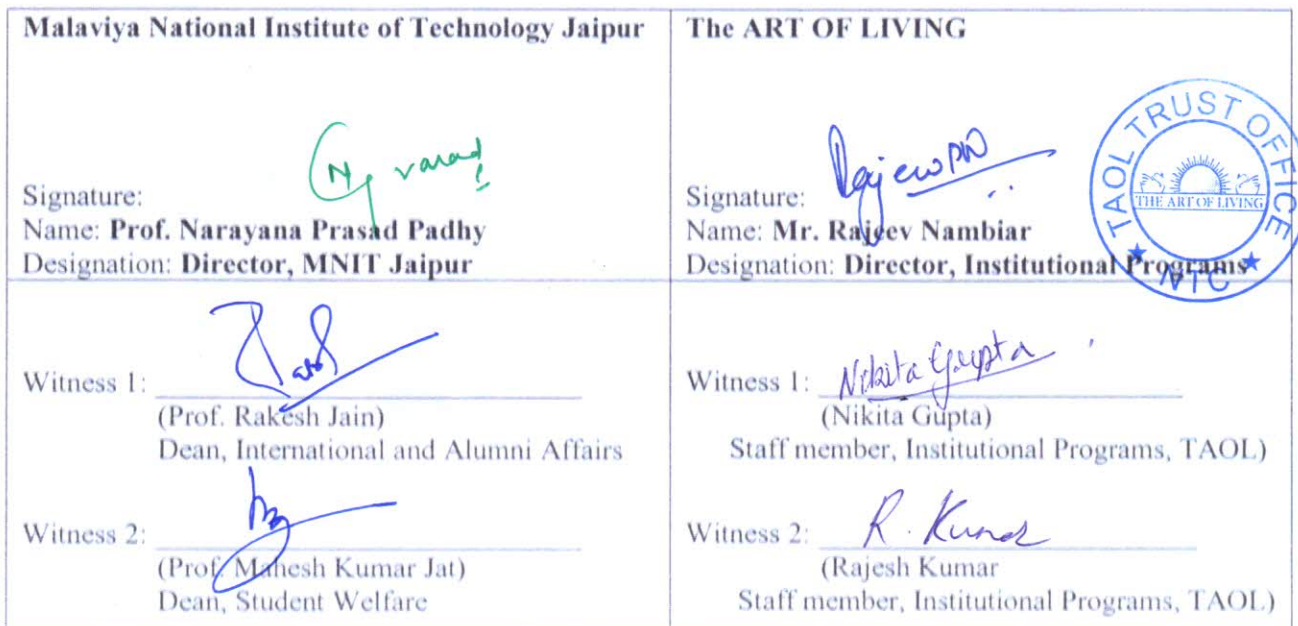 Malaviya National Institute of Technology Jaipur
Signature:
Name: Prof. Narayana Prasad Padhy
Designation: Director, MNIT Jaipur
The ART OF LIVING
Signature: Rajeev PN
Name: Mr. Rajeev Nambiar
Designation: Director, Institutional Programs
TAOL TRUST OFFICE
THE ART OF LIVING
★ NTC ★
Witness 1:
(Prof. Rakesh Jain)
Dean, International and Alumni Affairs
Witness 2:
(Prof. Mahesh Kumar Jat)
Dean, Student Welfare
Witness 1: Nikita Gupta
(Nikita Gupta)
Staff member, Institutional Programs, TAOL)
Witness 2: R. Kumar
(Rajesh Kumar
Staff member, Institutional Programs, TAOL)